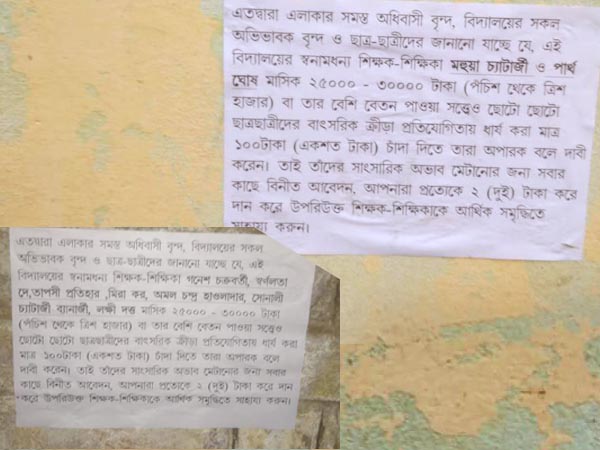 এতদ্বারা এলাকার সমস্ত অধিবাসী বৃন্দ, বিদ্যালয়ের সকল
অভিভাবক বৃন্দ ও ছাত্র-ছাত্রীদের জানানো যাচ্ছে যে, এই
বিদ্যালয়ের স্বনামধন্য শিক্ষক-শিক্ষিকা মহুয়া চ্যাটার্জী ও পার্থ
ঘোষ মাসিক ২৫০০০ - ৩০০০০ টাকা (পঁচিশ থেকে ত্রিশ
হাজার) বা তার বেশি বেতন পাওয়া সত্ত্বেও ছোটো ছোটো
ছাত্রছাত্রীদের বাৎসরিক ক্রীড়া প্রতিযোগিতায় ধার্য করা মাত্র
১০০টাকা (একশত টাকা) চাঁদা দিতে তারা অপারক বলে দাবী
করেন। তাই তাঁদের সাংসারিক অভাব মেটানোর জন্য সবার
কাছে বিনীত আবেদন, আপনারা প্রত্যেকে ২ (দুই) টাকা করে
দান করে উপরিউক্ত শিক্ষক-শিক্ষিকাকে আর্থিক সমৃদ্ধিতে
সাহায্য করুন।
এতদ্বারা এলাকার সমস্ত অধিবাসী বৃন্দ, বিদ্যালয়ের সকল
অভিভাবক বৃন্দ ও ছাত্র-ছাত্রীদের জানানো যাচ্ছে যে, এই
বিদ্যালয়ের স্বনামধন্য শিক্ষক-শিক্ষিকা গনেশ চক্রবর্তী, স্বর্ণলতা
দে,তাপসী প্রতিহার ,মিরা কর, অমল চন্দ্র হাওলাদার, সোনালী
চ্যাটার্জী ব্যানার্জী, লক্ষী দত্ত মাসিক ২৫০০০ - ৩০০০০ টাকা
(পঁচিশ থেকে ত্রিশ হাজার) বা তার বেশি বেতন পাওয়া সত্ত্বেও
ছোটো ছোটো ছাত্রছাত্রীদের বাৎসরিক ক্রীড়া প্রতিযোগিতায় ধার্য করা
মাত্র ১০০টাকা (একশত টাকা) চাঁদা দিতে তারা অপারক বলে
দাবী করেন। তাই তাঁদের সাংসারিক অভাব মেটানোর জন্য সবার
কাছে বিনীত আবেদন, আপনারা প্রত্যেকে ২ (দুই) টাকা করে দান
করে উপরিউক্ত শিক্ষক-শিক্ষিকাকে আর্থিক সমৃদ্ধিতে সাহায্য করুন।